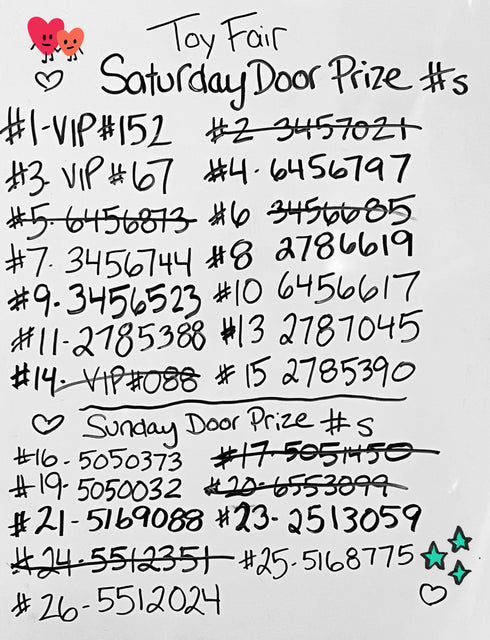 Toy Fair
Saturday Door Prize #s
#1-VIP#152 #2-3457021
#3. VIP#67 #4. 6456797
#5. 6456873 #6 3456685
#7. 3456744 #8 2786619
#9. 3456523 #10 6456617
#11-2785388 #13 2787045
#14. VIP#088 #15 2785390
Sunday Door Prize #s
#16-5050373 #17-5051450
#19-5050032 #20-6553099
#21-5169088 #23-2513059
#24-5512351 #25-5168775
#26-5512024